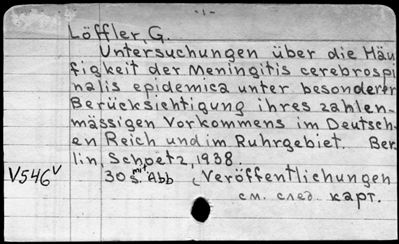 - 1 -
Löffler, G.
Untersuchungen über die Häu
figkeit der Meningitis cerebrospi
nalis epidemica unter besonderer
Berücksichtigung ihres zahlen-
mässigen Vorkommens im Deutsch-
en Reich und im Ruhrgebiet. Ber
lin, Schoetz, 1938.
V546V 30 S. mit Abb (Veröffentlichungen
см. след. карт.